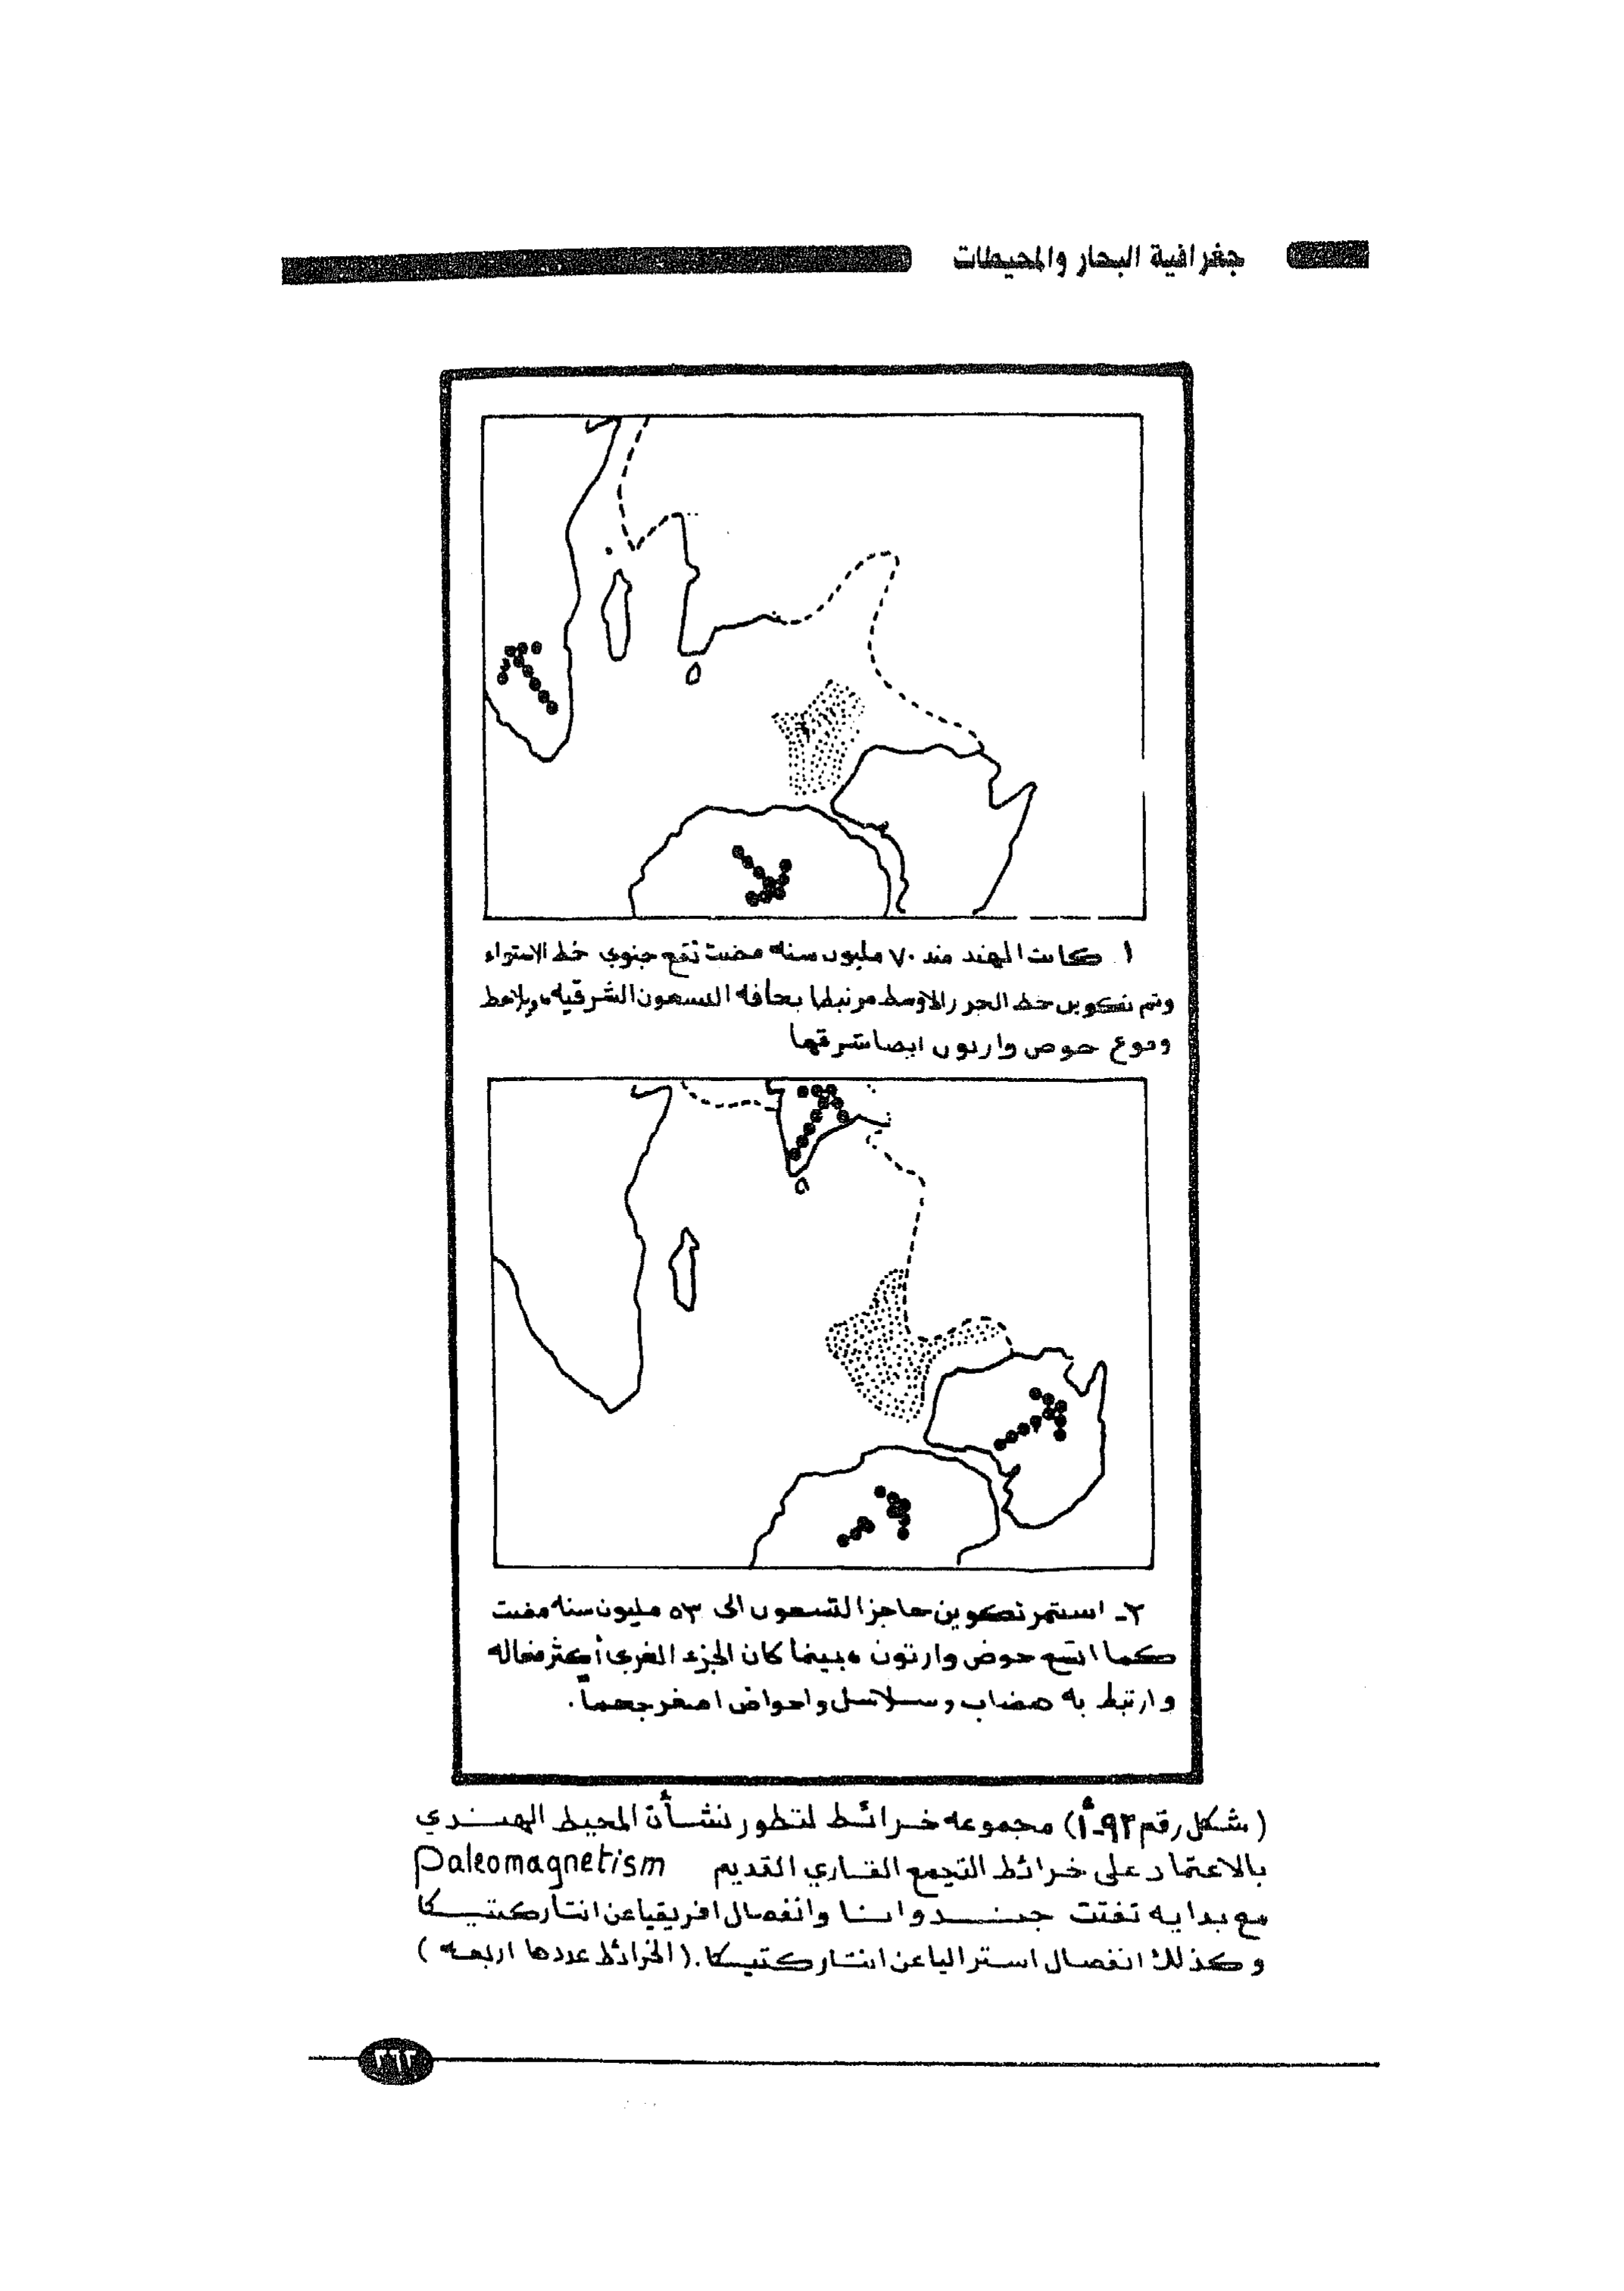 جغرافية البحار والمحيطات
١ كانت الهند منذ ٧٠ مليون سنه مضت تقع جنوبي خط الاستواء
وتم تكوين خط الحيز الاوسط مرتبطا بحافه التسعون الشرقيه، ويلاحظ
وقوع حوض وارتون ايضا شرقها
٢- استمر تكوين حاجز التسعون الى ٥٣ مليون سنه مضت
كما اتسع حوض وارتون، بينما كان الجزء الغربى أكثر ضحاله
وارتبط به هضاب وسلاسل واحواض اصغر حجماً.
(شكل رقم ٩٢-أ) مجموعه خرائط لتطور نشأة المحيط الهندي
بالاعتماد على خرائط التجمع القاري القديم Paleomagnetism
مع بدايه تفتت جندوانا وانفصال افريقيا عن انتاركتيكا
وكذلك انفصال استراليا عن انتاركتيكا. (الخرائط عددها اربعه)
٢٦٢